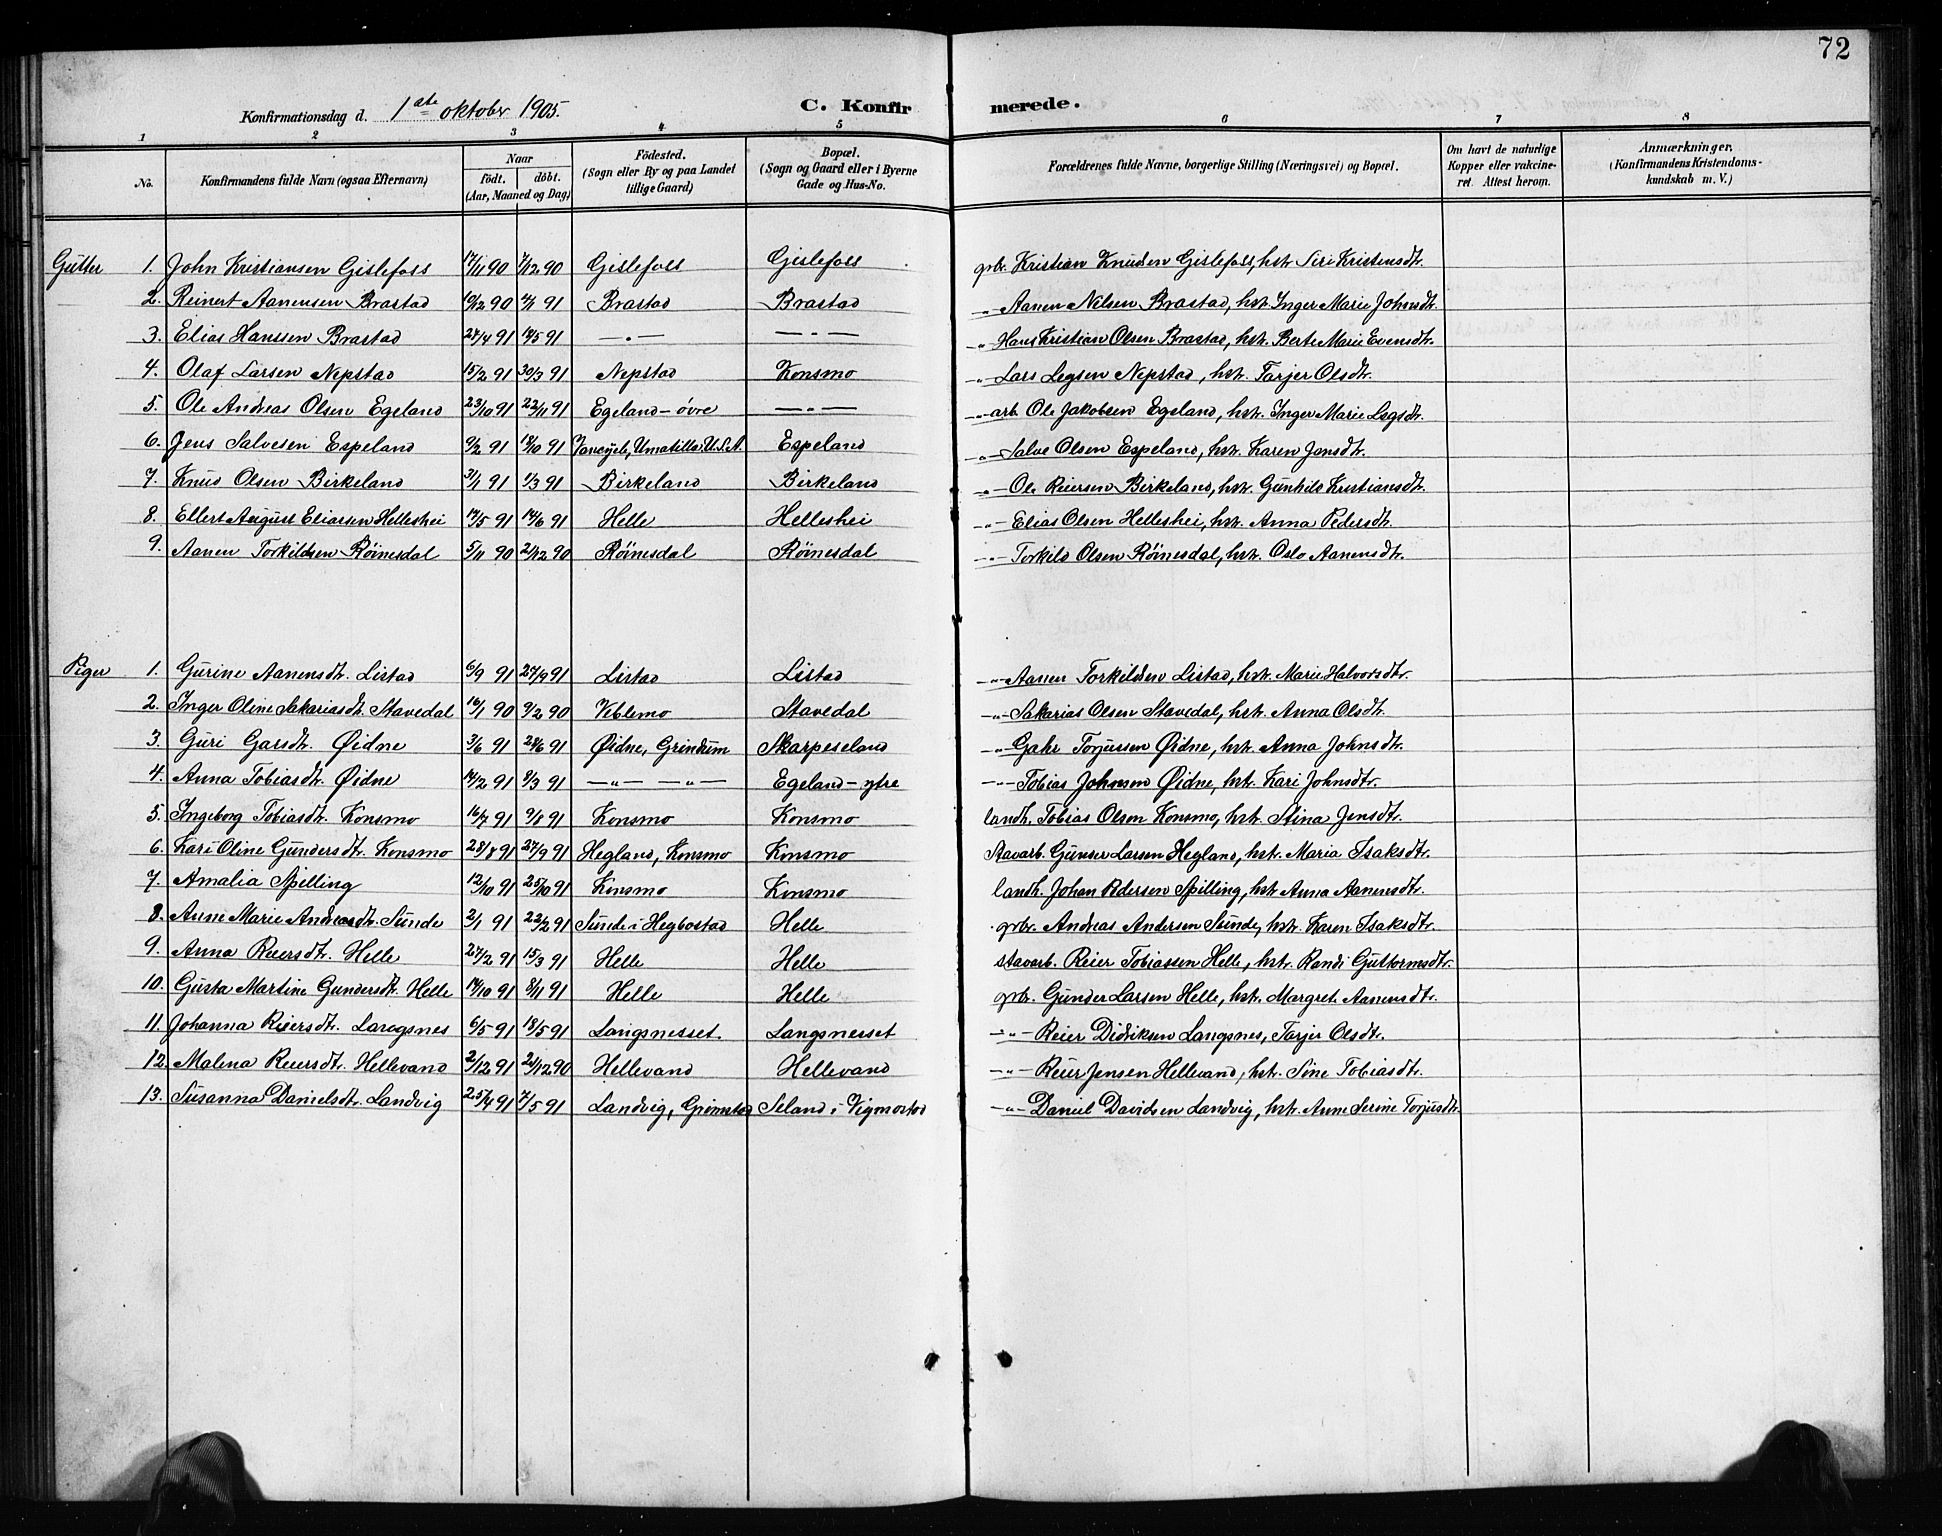 72
Konfirmationsdag d. 1ste oktober 1905. C. Konfirmerede.
1 2 3 4 5 6 7 8
No. Konfirmandens fulde Navn (ogsaa Efternavn) Naar født. døbt. (Aar, Maaned og Dag) Födested. (Sogn eller By og paa Landet tillige Gaard) Bopæl. (Sogn og Gaard eller i Byerne Gade og Hus-No. Forældrenes fulde Navne, borgerlige Stilling (Næringsvei) og Bopæl. Om havt de naturlige Kopper eller vakcineret. Attest herom. Anmærkninger. (Konfirmandens Kristendomskundskab m. V.)
Gutter 1. John Kristiansen Gislefoss 17/11 90 7/12 90 Gislefoss Gislefoss gbr. Kristian Knudsen Gislefoss, hstr. Siri Kristensdtr.
2. Reinert Aanensen Brastad 10/2 90 4/1 91 Brastad Brastad -"- Aanen Nilsen Brastad, hstr. Inger Marie Johnsdtr.
3. Elias Hanssen Brastad 27/4 91 18/5 91 -"- -"- -"- Hans Kristian Olsen Brastad, hstr. Berte Marie Evensdtr.
4. Olaf Larsen Nepstad 15/2 91 30/3 91 Nepstad Konsmo -"- Lars Legsen Nepstad, hstr. Tarjer Olsdtr.
5. Ole Andreas Olsen Egeland 23/10 91 22/11 91 Egeland-øvre -"- -"- arb. Ole Jakobsen Egeland, hstr. Inger Marie Legsdtr.
6. Jens Salvesen Espeland 9/2 91 18/10 91 Umatilla U.S.A. Espeland -"- Salve Olsen Espeland, hstr. Karen Jensdtr.
7. Knud Olsen Birkeland 31/1 91 1/3 91 Birkeland Birkeland -"- Ole Reiersen Birkeland, hstr. Gunhild Kristiansdtr.
8. Ellert August Eliassen Helleshei 17/5 91 14/6 91 Helle Helleshei -"- Elias Olsen Helleshei, hstr. Anna Pedersdtr.
9. Aanen Torkildsen Röinesdal 5/11 90 2/12 90 Röinesdal Röinesdal -"- Torkild Olsen Röinesdal, hstr. Oslo Aanensdtr.
Piger 1. Gurine Aanensdtr. Listad 6/9 91 27/9 91 Listad Listad -"- Aanen Torkildsen Listad, hstr. Marie Halvorsdtr.
2. Inger Oline Sakariasdtr. Stavedal 16/1 90 9/2 90 Vblemo Stavedal -"- Sakarias Olsen Stavedal, hstr. Anna Olsdtr.
3. Guri Garsdtr. Øidne 3/6 91 24/6 91 Øidne, Grindum Skarpeseland -"- Gahr Torjussen Øidne, hstr. Anna Johnsdtr.
4. Anna Tobiasdtr. Øidne 14/2 91 8/3 91 -"- -"- Egeland-ytre -"- Tobias Johnsen Øidne, hstr. Kari Johnsdtr.
5. Ingeborg Tobiasdtr. Konsmo 16/7 91 9/8 91 Konsmo Konsmo landh. Tobias Olsen Konsmo, hstr. Stina Jensdtr.
6. Kari Oline Gundersdtr. Konsmo 28/8 91 27/9 91 Hegland, Konsmo Konsmo Stavarb. Gunder Larsen Hegland, hstr. Maria Isaksdtr.
7. Amalia Spilling 12/10 91 25/10 91 Konsmo Konsmo landh. Johan Pdersen Spilling, hstr. Anna Aanensdtr.
8. Anne Marie Andreasdtr. Sunde 2/1 91 22/2 91 Sunde i Hegbostad Helle gbr. Andreas Andersen Sunde, hstr. Karen Isaksdtr.
9. Anna Reiersdtr. Helle 27/2 91 15/3 91 Helle Helle stavarb. Reier Tobiassen Helle, hstr. Randi Guttormsdtr.
10. Gusta Martine Gundersdtr. Helle 14/10 91 8/11 91 Helle Helle gbr. Gunder Larsen Helle, hstr. Margret Aanensdtr.
11. Johanna Reiersdtr. Langsnes 6/5 91 18/5 91 Langsnesset Langsnesset -"- Reier Didriksen Langsnes, Tarjer Olsdtr.
12. Malena Reiersdtr. Hellevand 2/12 91 21/12 90 Hellevand Hellevand -"- Reier Jensen Hellevand, hstr. Sine Tobiasdtr.
13. Susanna Danielsdtr. Landvig 25/4 91 7/5 91 Landvig, Grimstad Seland i Vigmostad -"- Daniel Davidsen Landvig, hstr. Anne Serine Torjusdtr.